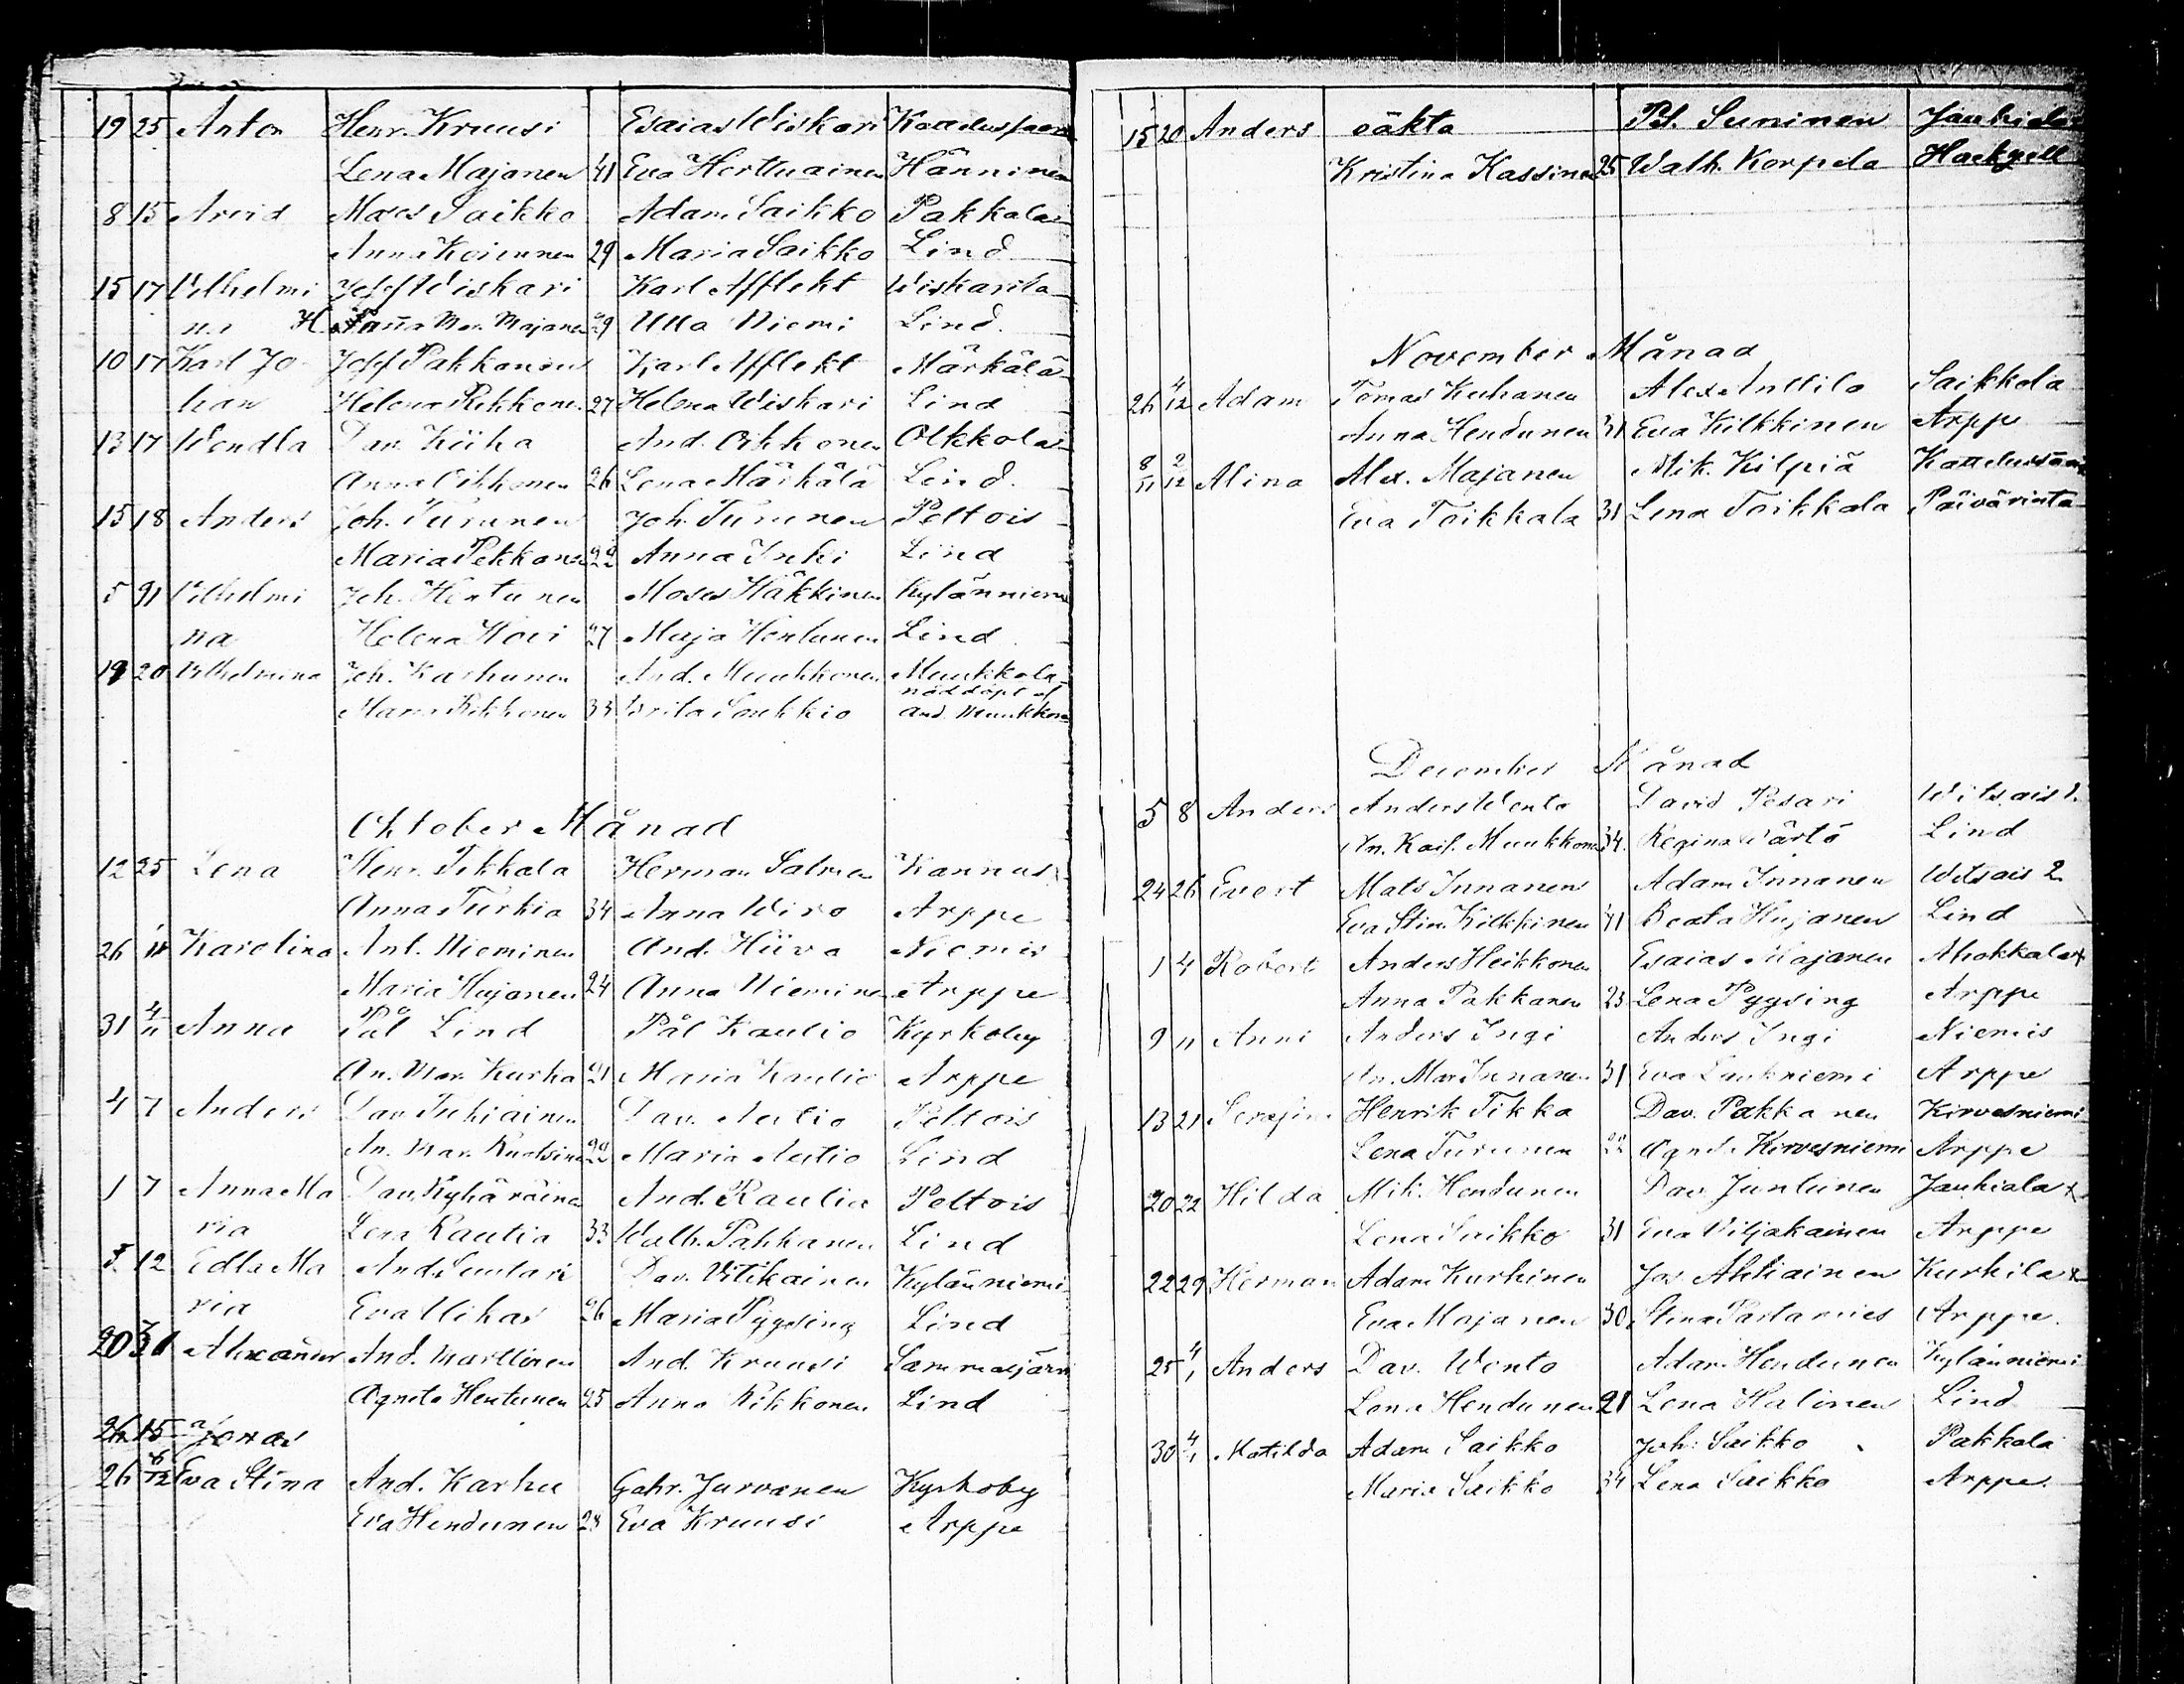 19 25 Anton Henr. Kruusi Esaias Wiskari
Lena Majanen 41 Eva Herttuainen Hänninen
8 15 Arvid Moses Saikko Adam Saikko Pakkala
Anna 29 Maria Saikko Lind
15 17 Vilhelmi Josef Wiskari Karl Afflekt Wiskarila
na Hanna Mar. Majanen 29 Ulla Niemi Lind.
10 17 Karl Jo Josef Pakkanen Karl Afflekt Märkälä
han Helena Pekkonen 27 Helena Wiskari Lind
13 17 Wendla Dav. Kiiha And. Oikkonen Olkkola
Anna Oikkonen 26 Lena Märkälä Lind.
15 18 Anders Joh. Turunen Joh. Turunen Peltois
Maria Pekkonen 22 Anna Inki Lind
5 21 Vilhelmi Joh. Hentunen Moses Häkkinen Kylänniemi
na Helena Hovi 27 Maja Hentunen Lind
19 20 Vilhelmina Joh. Karhunen And. Muukkonen Muukkola
nöddöpt af
Maria Pekkonen 33 Brita Soukkio And. Muukkonen
Oktober Månad
12 25 Lena Henr. Tikkala Herman Salmen Kannus
Anna Turkia 34 Anna Wiro Arppe
26 Karolina Ant. Nieminen And. Hiiva Niemis
Maria Hujanen 24 Anna Nieminen Arppe
31 4/11 Anna Pål Lind Pål Kaulio Kyrkoby
An. Mar. Kurha 21 Maria Kaulio Arppe
4 7 Anders Dav. Tukiainen Dav. Autio Peltois
An. Mar. Maria Autio Lind
1 7 Anna Ma Dav. Kyhäräinen And. Rautia Peltois
ria Lena Rautia 33 Walb. Pakkanen Lind
5 12 Edla Ma And. Suutari Dav. Vitikainen Kylänniemi
ria Eva Ukas 26 Maria Pygsing Lind
20 Alexander And. Marttinen And. Kruusi Sammaljärvi
Agneta Hentunen 25 Anna Kikkonen Lind
26 15 Jonas
26 6/12 Eva Stina And. Karhu Gabr. Jurvanen Kyrkoby
Eva Hendunen 28 Eva Kruusi Arppe
15 20 Anders oäkta Pl. Suninen Jauhiala
Kristina Kassinen 25 Walb. Korpela Hackzell
November Månad
26 4/12 Adam Tomas Kuhanen Alex. Anttila Saikkola
Anna Hendunen 31 Eva Kilkkinen Arppe
8/11 2/12 Alina Alex. Majanen Mik. Kilpiä
Eva Toikkala 31 Lena Toikkala Päivärinta
December Månad
5 8 Anders Anders Wento David Pesari Witsais 2.
An. Kais. Muukkonen 34. Regina Lind
24 26 Evert Mats Innanen Adam Innanen Witsais 2
Eva Stin. Kilkkinen 41 Beata Hujanen Lind
1 4 Robert Anders Heikkonen Esaias Majanen Ahokkala x
Anna Pakkanen 23 Lena Pygsing Arppe
9 11 Anni Anders Ingi Anders Ingi Niemis
An. Mar. Innanen 31 Eva Lankniemi Arppe
13 21 Serafim Henrik Tikka Dav. Pakkanen Kirvesniemi
Lena Turunen 22 Agn. Kirvesniemi Arppe
20 22 Hilda Mik. Hendunen Dav. Juntunen Jauhiala x
Lena Saikko 31 Eva Viljakainen Arppe
22 29 Herman Adam Kurkinen Jos. Ahtiainen Kurkila x
Eva Majanen 30 Stina Partamies Arppe.
25 4/1 Anders Dav. Wento Adam Hendunen Kylänniemi
Lena Hendunen 28 Lena Halinen Lind
30 4/1 Matilda Adam Saikko Joh. Saikko Pakkala
Maria Saikko 34 Lena Saikko Arppe.